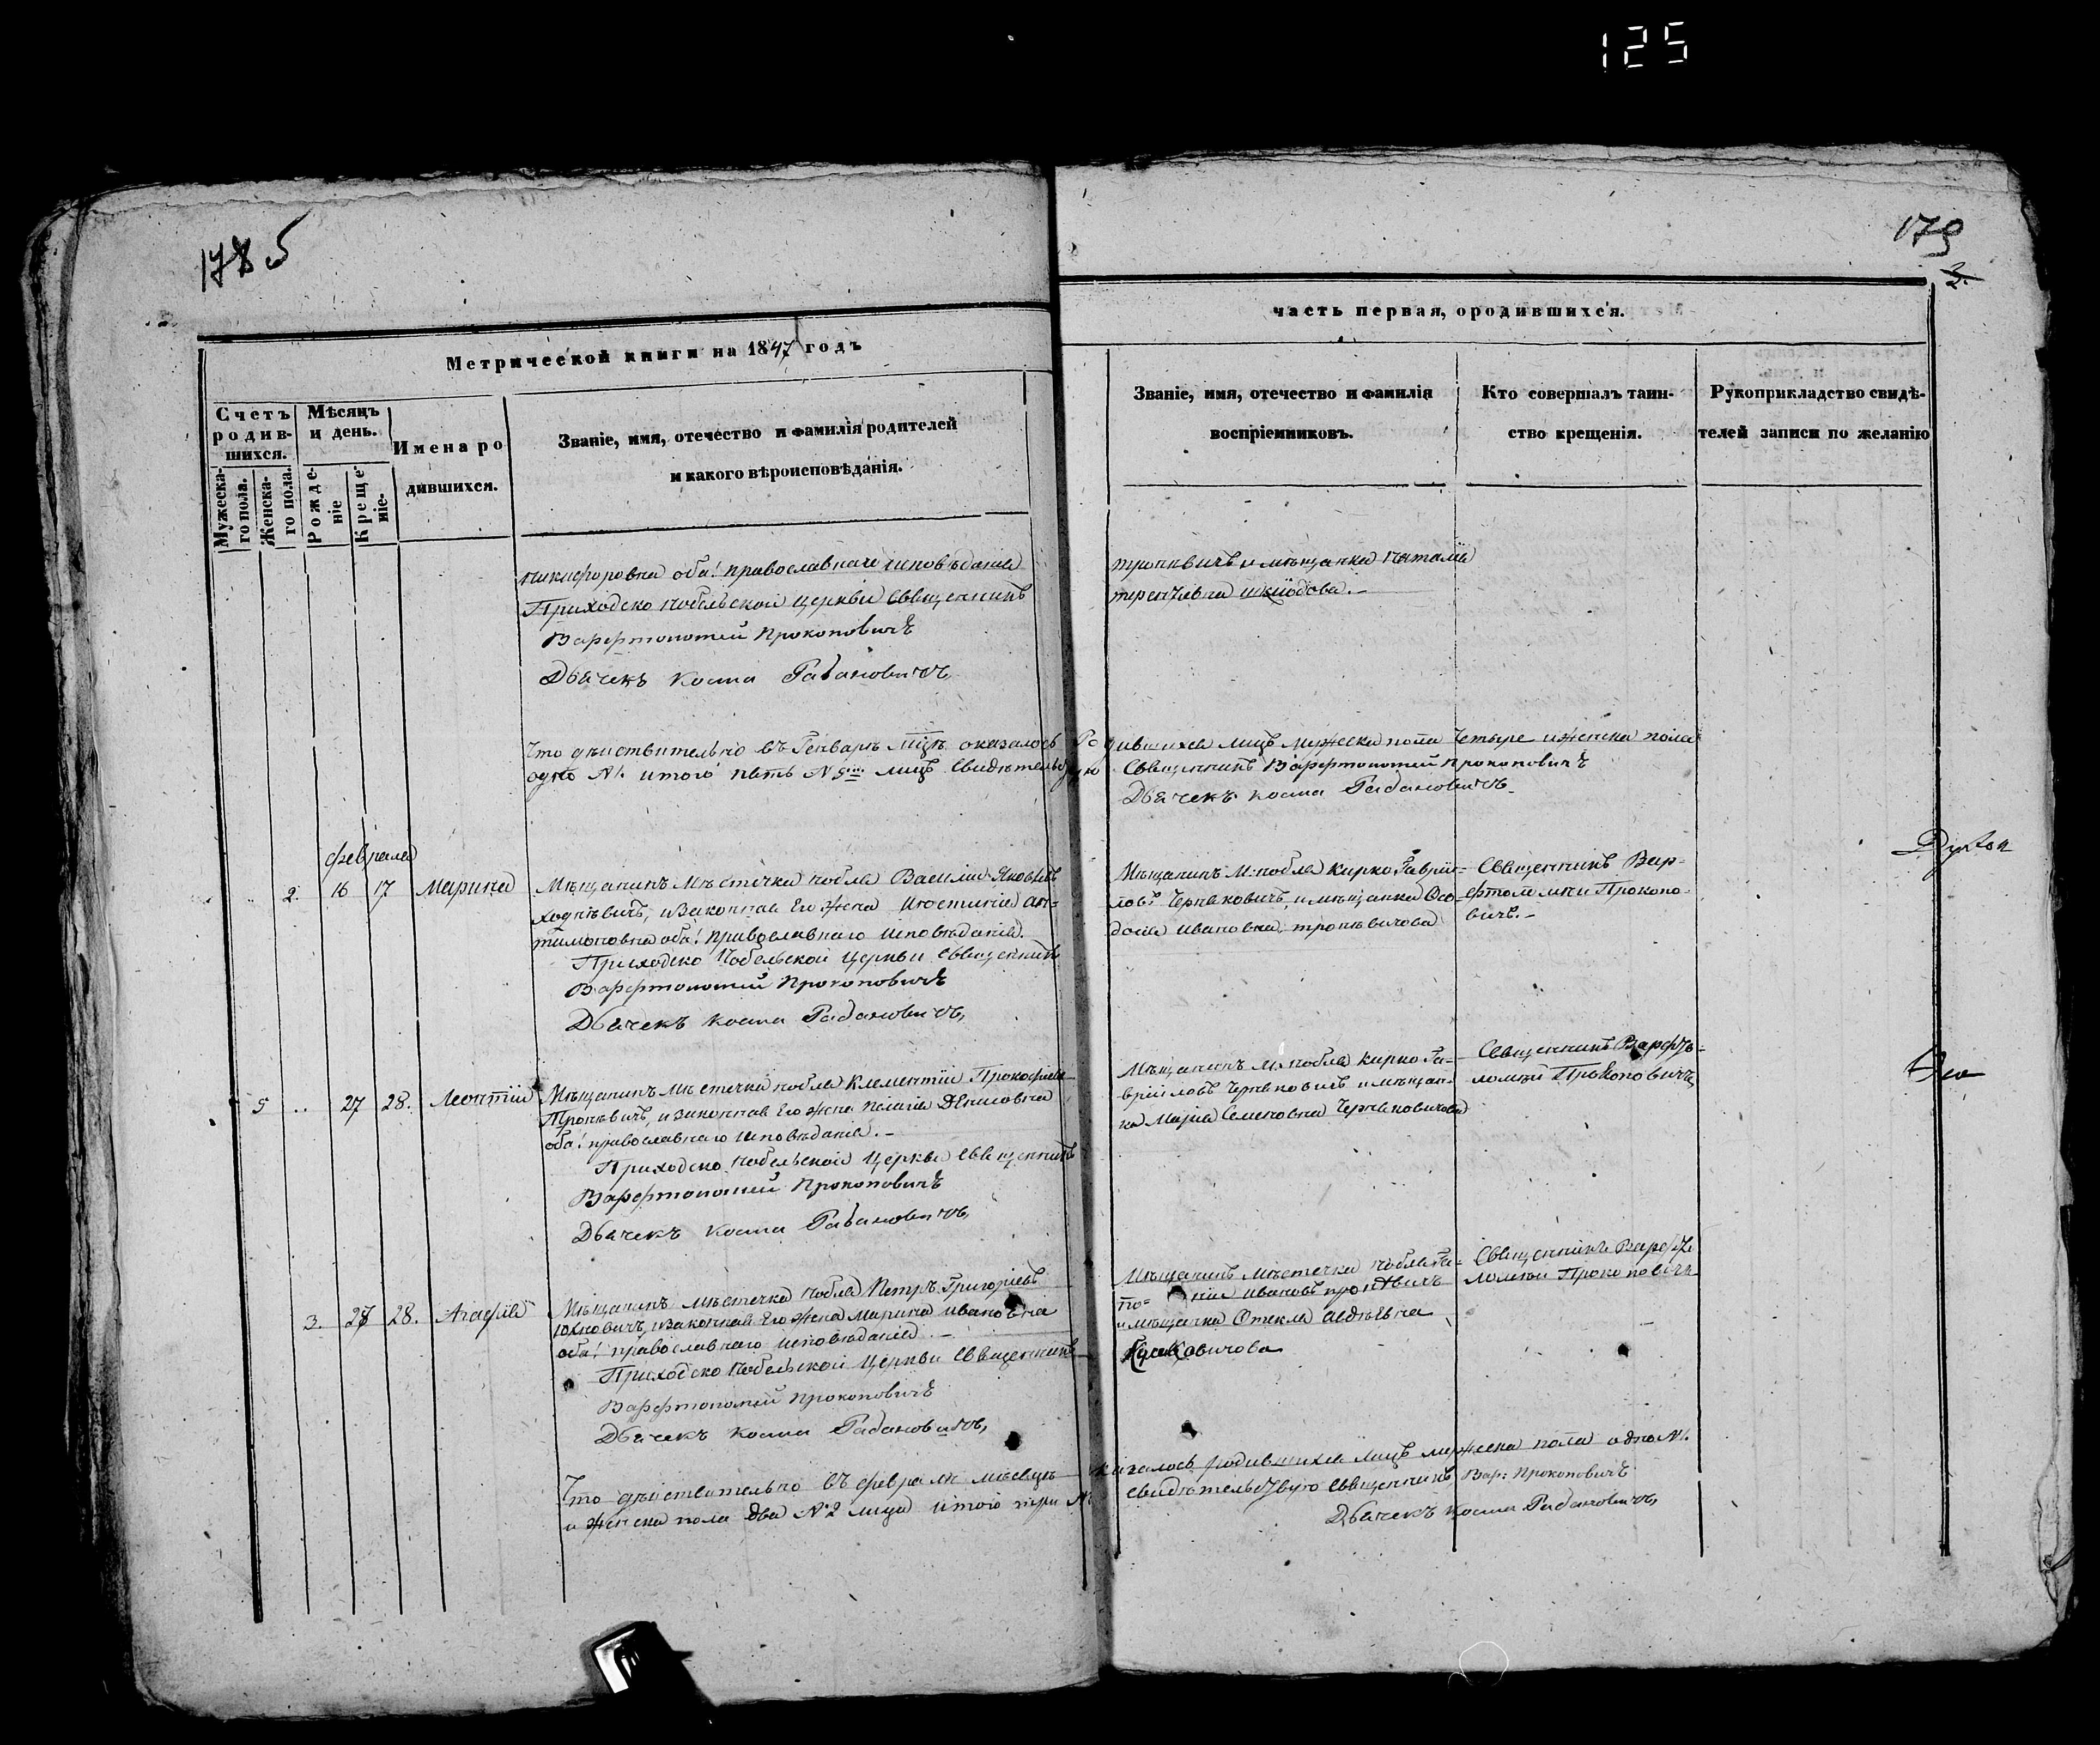 125
1785
179
2.
Метрической книги на 1847 годъ
часть первая, ородившихся.
Счетъ родив-шихся.
Мужеска-го пола.
Женска-го пола.
Мѣсяцъ и день.
Рожде-ніе
Креще-ніе.
Имена ро-
дившихся.
Званіе, имя, отечество и фамилія родителей
и какого вѣроисповѣданія.
Званіе, имя, отечество и фамилія
воспріемниковъ.
Кто совершалъ таин-
ство крещенія.
Рукоприкладство свидѣ-
телей записи по желанію
никифоровна оба! православнаго исповѣданія
Приходско Нобельской церкви Священникъ
Варфтоломей Прокоповичъ
Дьячекъ Косма Рабановичъ
наталія
терентіевна
Что дѣйствительно въ Генварѣ мцѣ оказалось Родившихся лицъ мужеска пола Четыре и женска пола
одно №1. итого пять №5 лицъ Свидѣтельствую Священникъ Варфтоломей Прокоповичъ
Дьячекъ Косма Рабановичъ
февраля
2. 16 17 Марина
Мѣщанинъ Мѣстечка Нобля Василій Яковлевъ
Ходнѣвичъ, и Законная Его Жена Иустинія Ан-
тимоновна оба! православнаго исповѣданія.
Приходско Нобельской Церкви Священникъ
Варфтоломей Прокоповичъ
Дьячекъ Косма Рабановичъ,
Мѣщанинъ М. Нобля Кирко Гаврии-
ловъ Чернѣковичъ, и мѣщанка Ѳео-
досія Ивановна тропѣвичова
Священникъ Вар-
фтоломей Прокопо-
вичъ.-
5 .. 27 28. Леонтій
Мѣщанинъ Мѣстечка Нобля Клементій Прокофіевъ
Тропѣвичъ, и законная Его Жена Пелагія Денисовна
оба! православнаго исповѣданія.-
Приходско Нобельской Церкви Священникъ
Варфтоломей Прокоповичъ
Дьячекъ Косма Рабановичъ,
Мѣщанинъ М. Нобля Кирко Га-
врііловъ Чернѣковичъ и мѣщан-
ка Марія Семеновна Чернѣковичова
Священникъ Варфто-
ломей Прокоповичъ
3. 28 28. Агафія
Мѣщанинъ Мѣстечка Нобля Петръ Григоріевъ
Юхновичъ, и Законная Его Жена Марина Ивановна
оба! православнаго исповѣданія.-
Приходско Нобельской Церкви Священникъ
Варфтоломей Прокоповичъ
Дьячекъ Косма Рабановичъ,
Мѣщанинъ Мѣстечка Нобля
Ивановъ
и мѣщанка Ѳтекла Авдѣевна
Священникъ Варфто
ломей Прокоповичъ
Что дѣйствительно въ февралѣ мѣсяцѣ оказалось родившихся лицъ мужеска пола одно №1.
и Женска пола два №2 лица итого три № свидѣтельствую Священникъ Вар: Прокоповичъ
Дьячекъ Косма Рабановичъ,